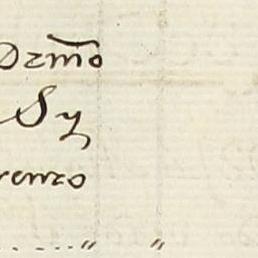 Dezmo
Sy
renzo
..---" "